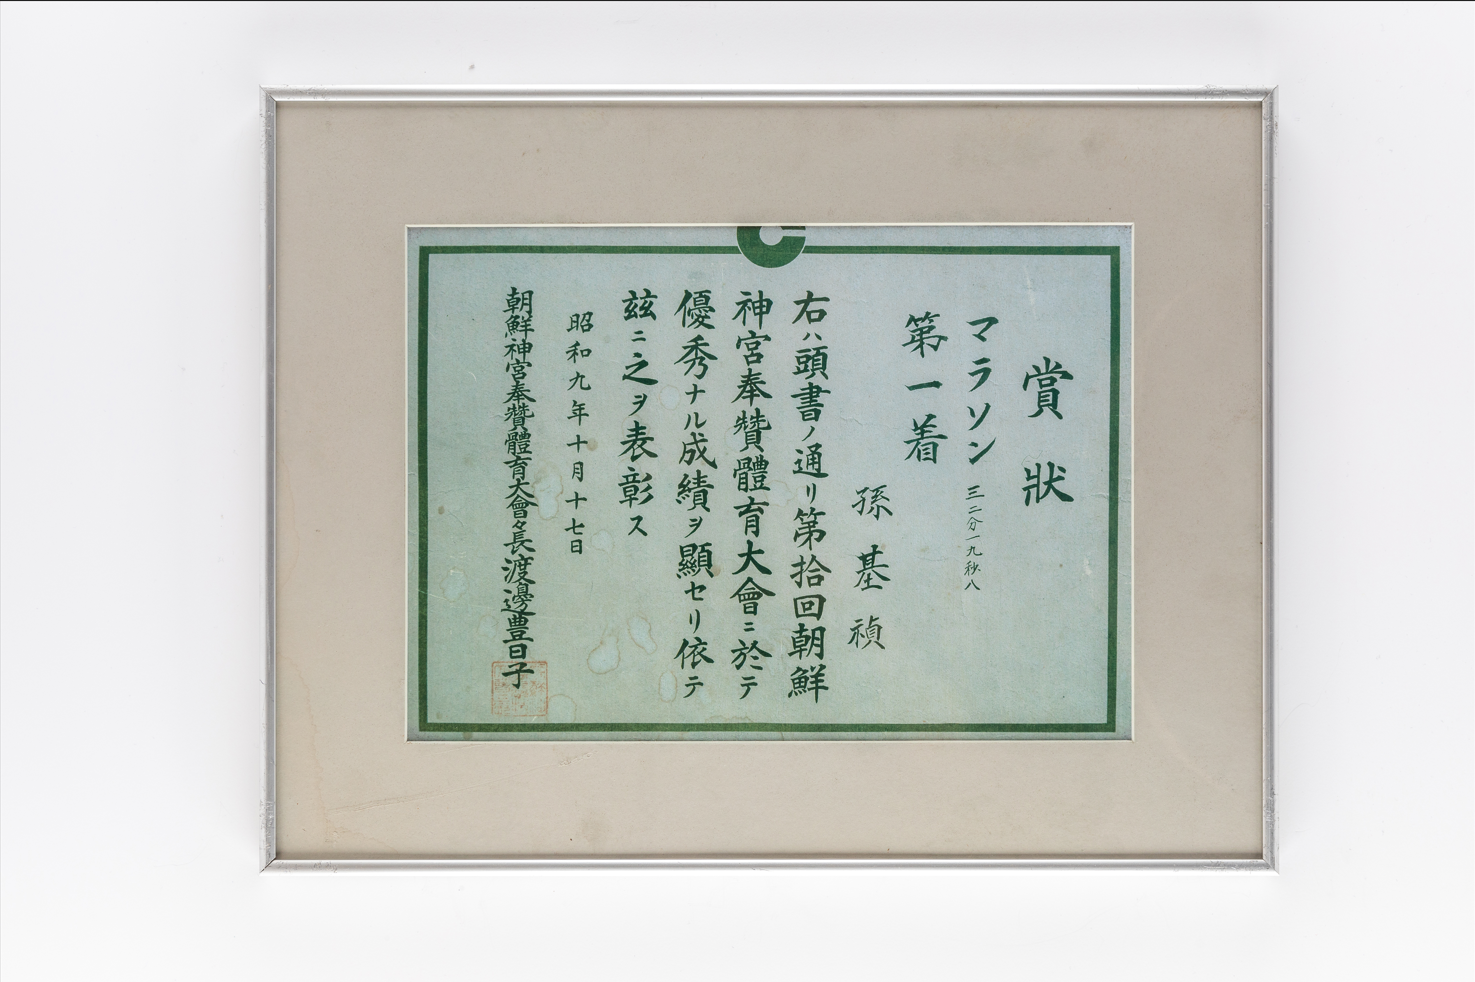 賞狀
マラソン 三二分一九秒八
第一着
孫基禎
右ハ頭書ノ通リ第拾回朝鮮
神宮奉贊體育大會ニ於テ
優秀ナル成績ヲ顯セリ依テ
玆ニ之ヲ表彰ス
昭和九年十月十七日
朝鮮神宮奉贊體育大會々長渡邊豊日子